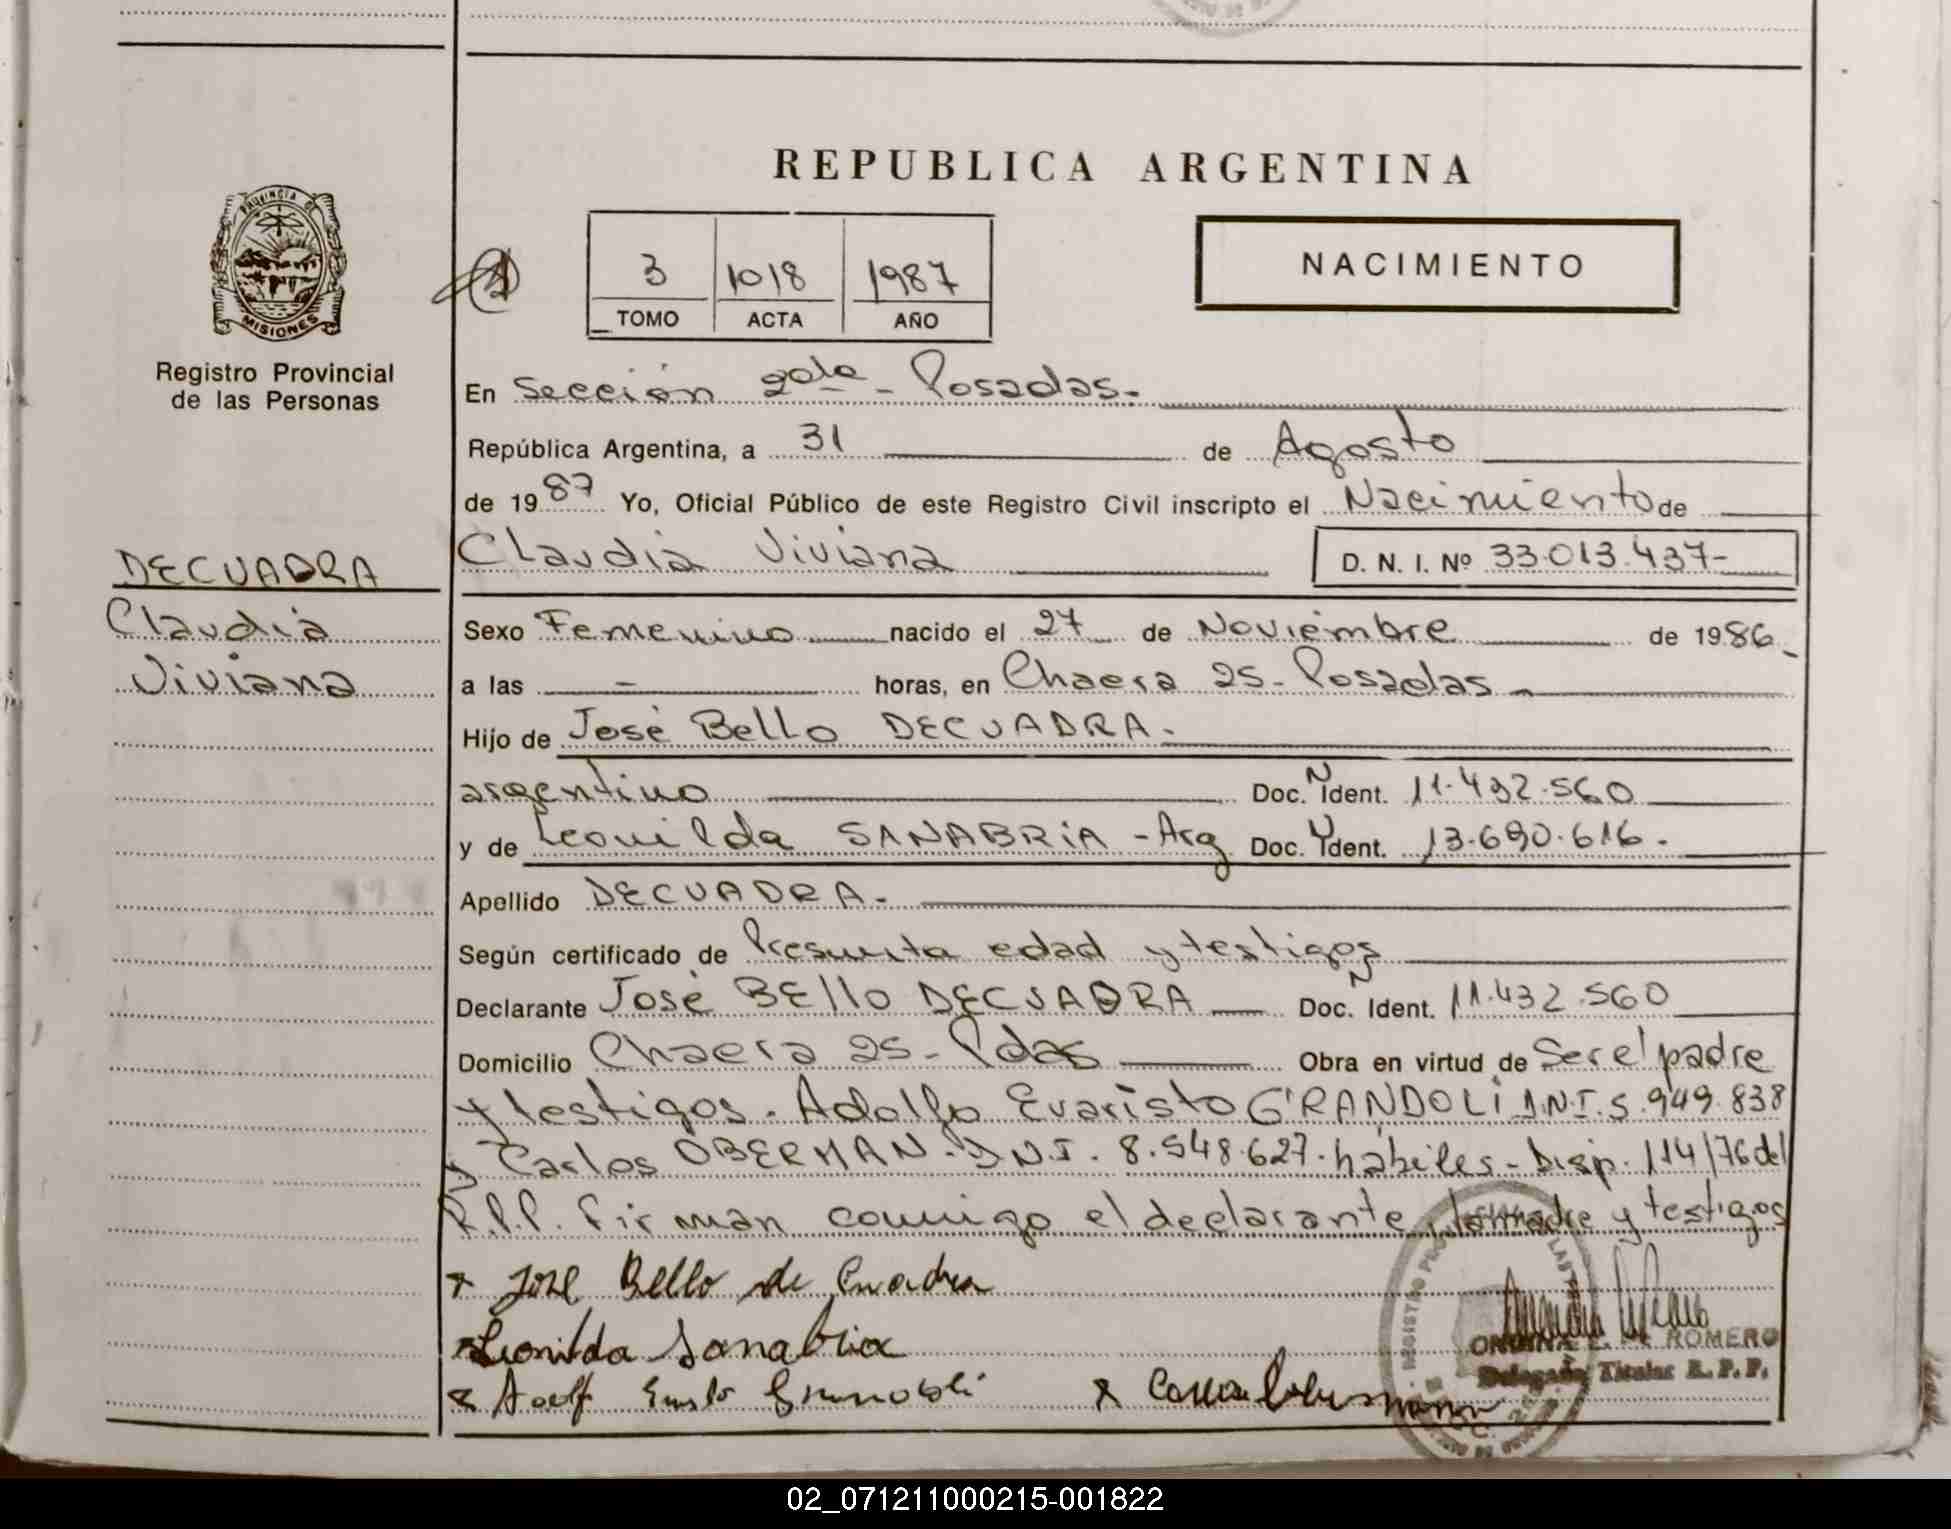 REPUBLICA ARGENTINA
PROVINCIA DE
MISIONES
Registro Provincial
de las Personas
3 1018 1987
TOMO ACTA AÑO
NACIMIENTO
En Sección 2da - Posadas.
República Argentina, a 31 de Agosto
de 1987 Yo, Oficial Público de este Registro Civil inscripto el Nacimiento de
Claudia Viviana D. N. I. Nº 33.013.437-
DECUADRA
Claudia
Viviana
Sexo Femenino nacido el 27 de Noviembre de 1986
a las - horas, en Chacra 25 - Posadas
Hijo de José Bello DECUADRA.
argentino Doc. N Ident. 11.432.560
y de Leonilda SANABRIA - Arg Doc. Ident. 13.690.616.
Apellido DECUADRA.
Según certificado de Presunta edad y testigos
Declarante José BEllo DECUADRA Doc. N Ident. 11.432.560
Domicilio Chacra 25 - Pdas Obra en virtud de Ser el padre
y testigos. Adolfo Evaristo GRANDOLI D.N.I. 5.949.838
y Carlos OBERMAN. D.N.I. 8.548.627. hábiles - Disp. 114/76 del
R.P.P. firman conmigo el declarante, la madre y testigos
José Bello de Cuadra
Leonilda Sanabria
ROMERO
Delegada Titular R. P. P.
02_071211000215-001822